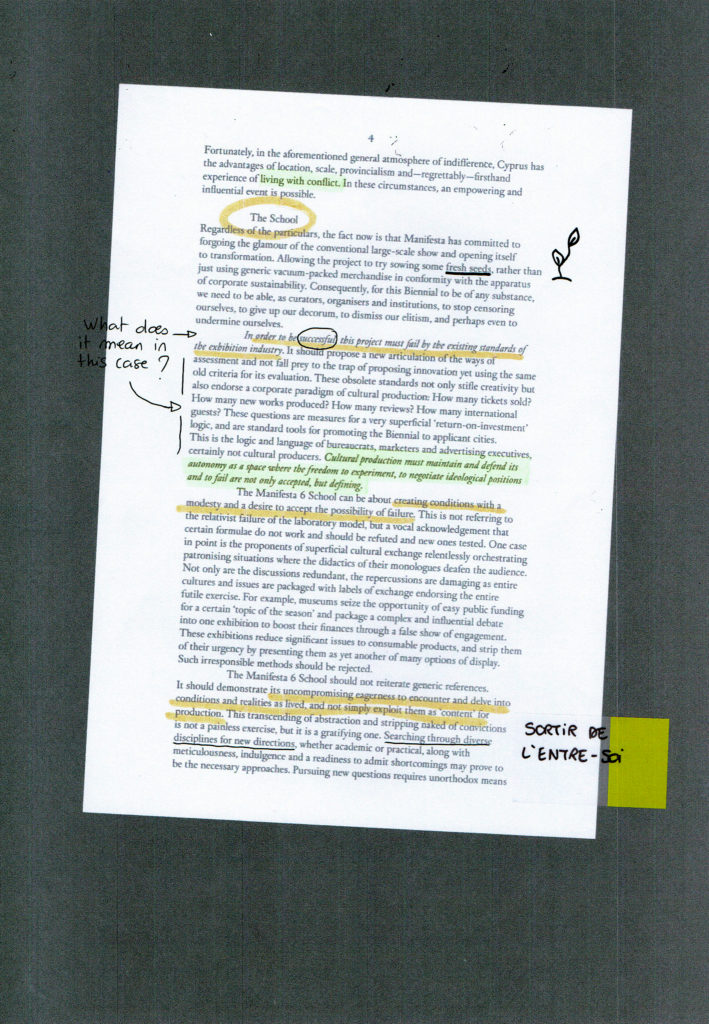 4
Fortunately, in the aforementioned general atmosphere of indifference, Cyprus has
the advantages of location, scale, provincialism and—regrettably—firsthand
experience of living with conflict. In these circumstances, an empowering and
influential event is possible.
The School
Regardless of the particulars, the fact now is that Manifesta has committed to
forgoing the glamour of the conventional large-scale show and opening itself
to transformation. Allowing the project to try sowing some fresh seeds, rather than
just using generic vacuum-packed merchandise in conformity with the apparatus
of corporate sustainability. Consequently, for this Biennial to be of any substance,
we need to be able, as curators, organisers and institutions, to stop censoring
ourselves, to give up our decorum, to dismiss our elitism, and perhaps even to
undermine ourselves.
What does
it mean in
this case ?
In order to be successful, this project must fail by the existing standards of
the exhibition industry. It should propose a new articulation of the ways of
assessment and not fall prey to the trap of proposing innovation yet using the same
old criteria for its evaluation. These obsolete standards not only stifle creativity but
also endorse a corporate paradigm of cultural production: How many tickets sold?
How many new works produced? How many reviews? How many international
guests? These questions are measures for a very superficial 'return-on-investment'
logic, and are standard tools for promoting the Biennial to applicant cities.
This is the logic and language of bureaucrats, marketers and advertising executives,
certainly not cultural producers. Cultural production must maintain and defend its
autonomy as a space where the freedom to experiment, to negotiate ideological positions
and to fail are not only accepted, but defining.
The Manifesta 6 School can be about creating conditions with a
modesty and a desire to accept the possibility of failure. This is not referring to
the relativist failure of the laboratory model, but a vocal acknowledgement that
certain formulae do not work and should be refuted and new ones tested. One case
in point is the proponents of superficial cultural exchange relentlessly orchestrating
patronising situations where the didactics of their monologues deafen the audience.
Not only are the discussions redundant, the repercussions are damaging as entire
cultures and issues are packaged with labels of exchange endorsing the entire
futile exercise. For example, museums seize the opportunity of easy public funding
for a certain 'topic of the season' and package a complex and influential debate
into one exhibition to boost their finances through a false show of engagement.
These exhibitions reduce significant issues to consumable products, and strip them
of their urgency by presenting them as yet another of many options of display.
Such irresponsible methods should be rejected.
The Manifesta 6 School should not reiterate generic references.
It should demonstrate its uncompromising eagerness to encounter and delve into
conditions and realities as lived, and not simply exploit them as 'content' for
production. This transcending of abstraction and stripping naked of convictions
is not a painless exercise, but it is a gratifying one. Searching through diverse
disciplines for new directions, whether academic or practical, along with
meticulousness, indulgence and a readiness to admit shortcomings may prove to
be the necessary approaches. Pursuing new questions requires unorthodox means
SORTIR DE
L'ENTRE-SOI